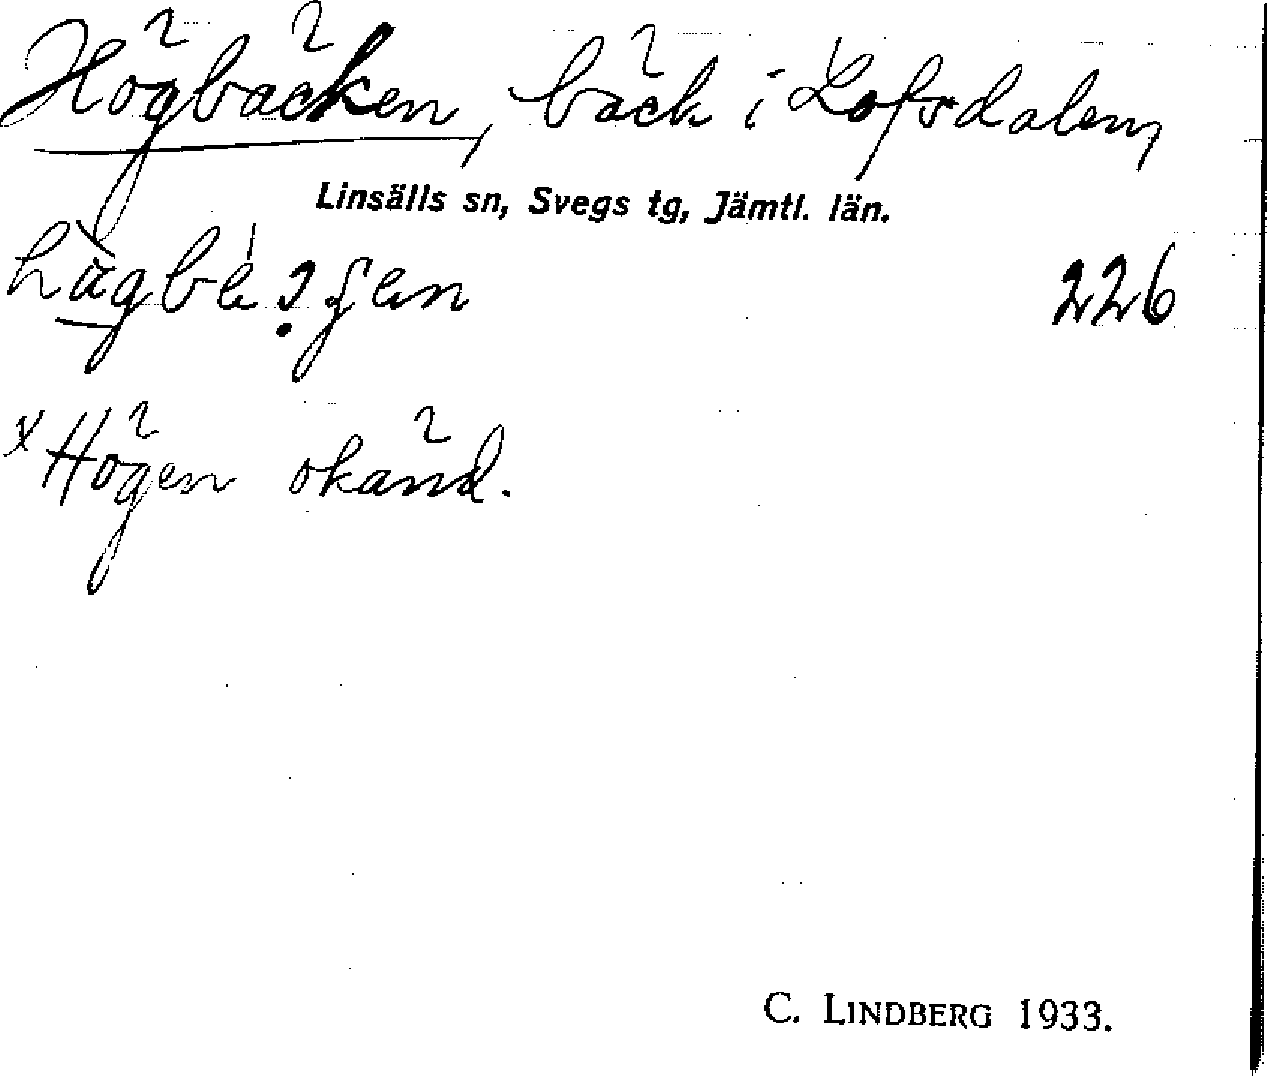 Högbäcken, bäck i Lofsdalen,
Linsälls sn, Svegs tg, Jämtl. län.
226
x Högen okänd.
C. LINDBERG 1933.